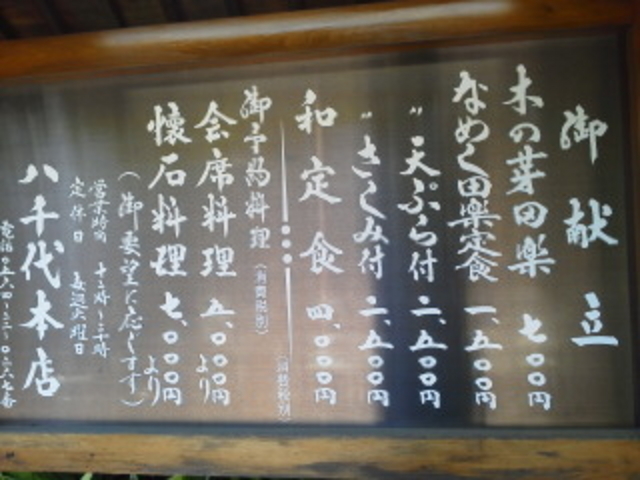 御献立
木の芽田楽 七〇〇円
なめし田楽定食 一、五〇〇円
〃 天ぷら付 二、五〇〇円
〃 さしみ付 二、五〇〇円
和定食 四、〇〇〇円
(消費税別)
御予約料理 (消費税別)
会席料理 五、〇〇〇円より
懐石料理 七、〇〇〇円より
(御要望に応じます)
営業時間
定休日 毎週火曜日
八千代本店